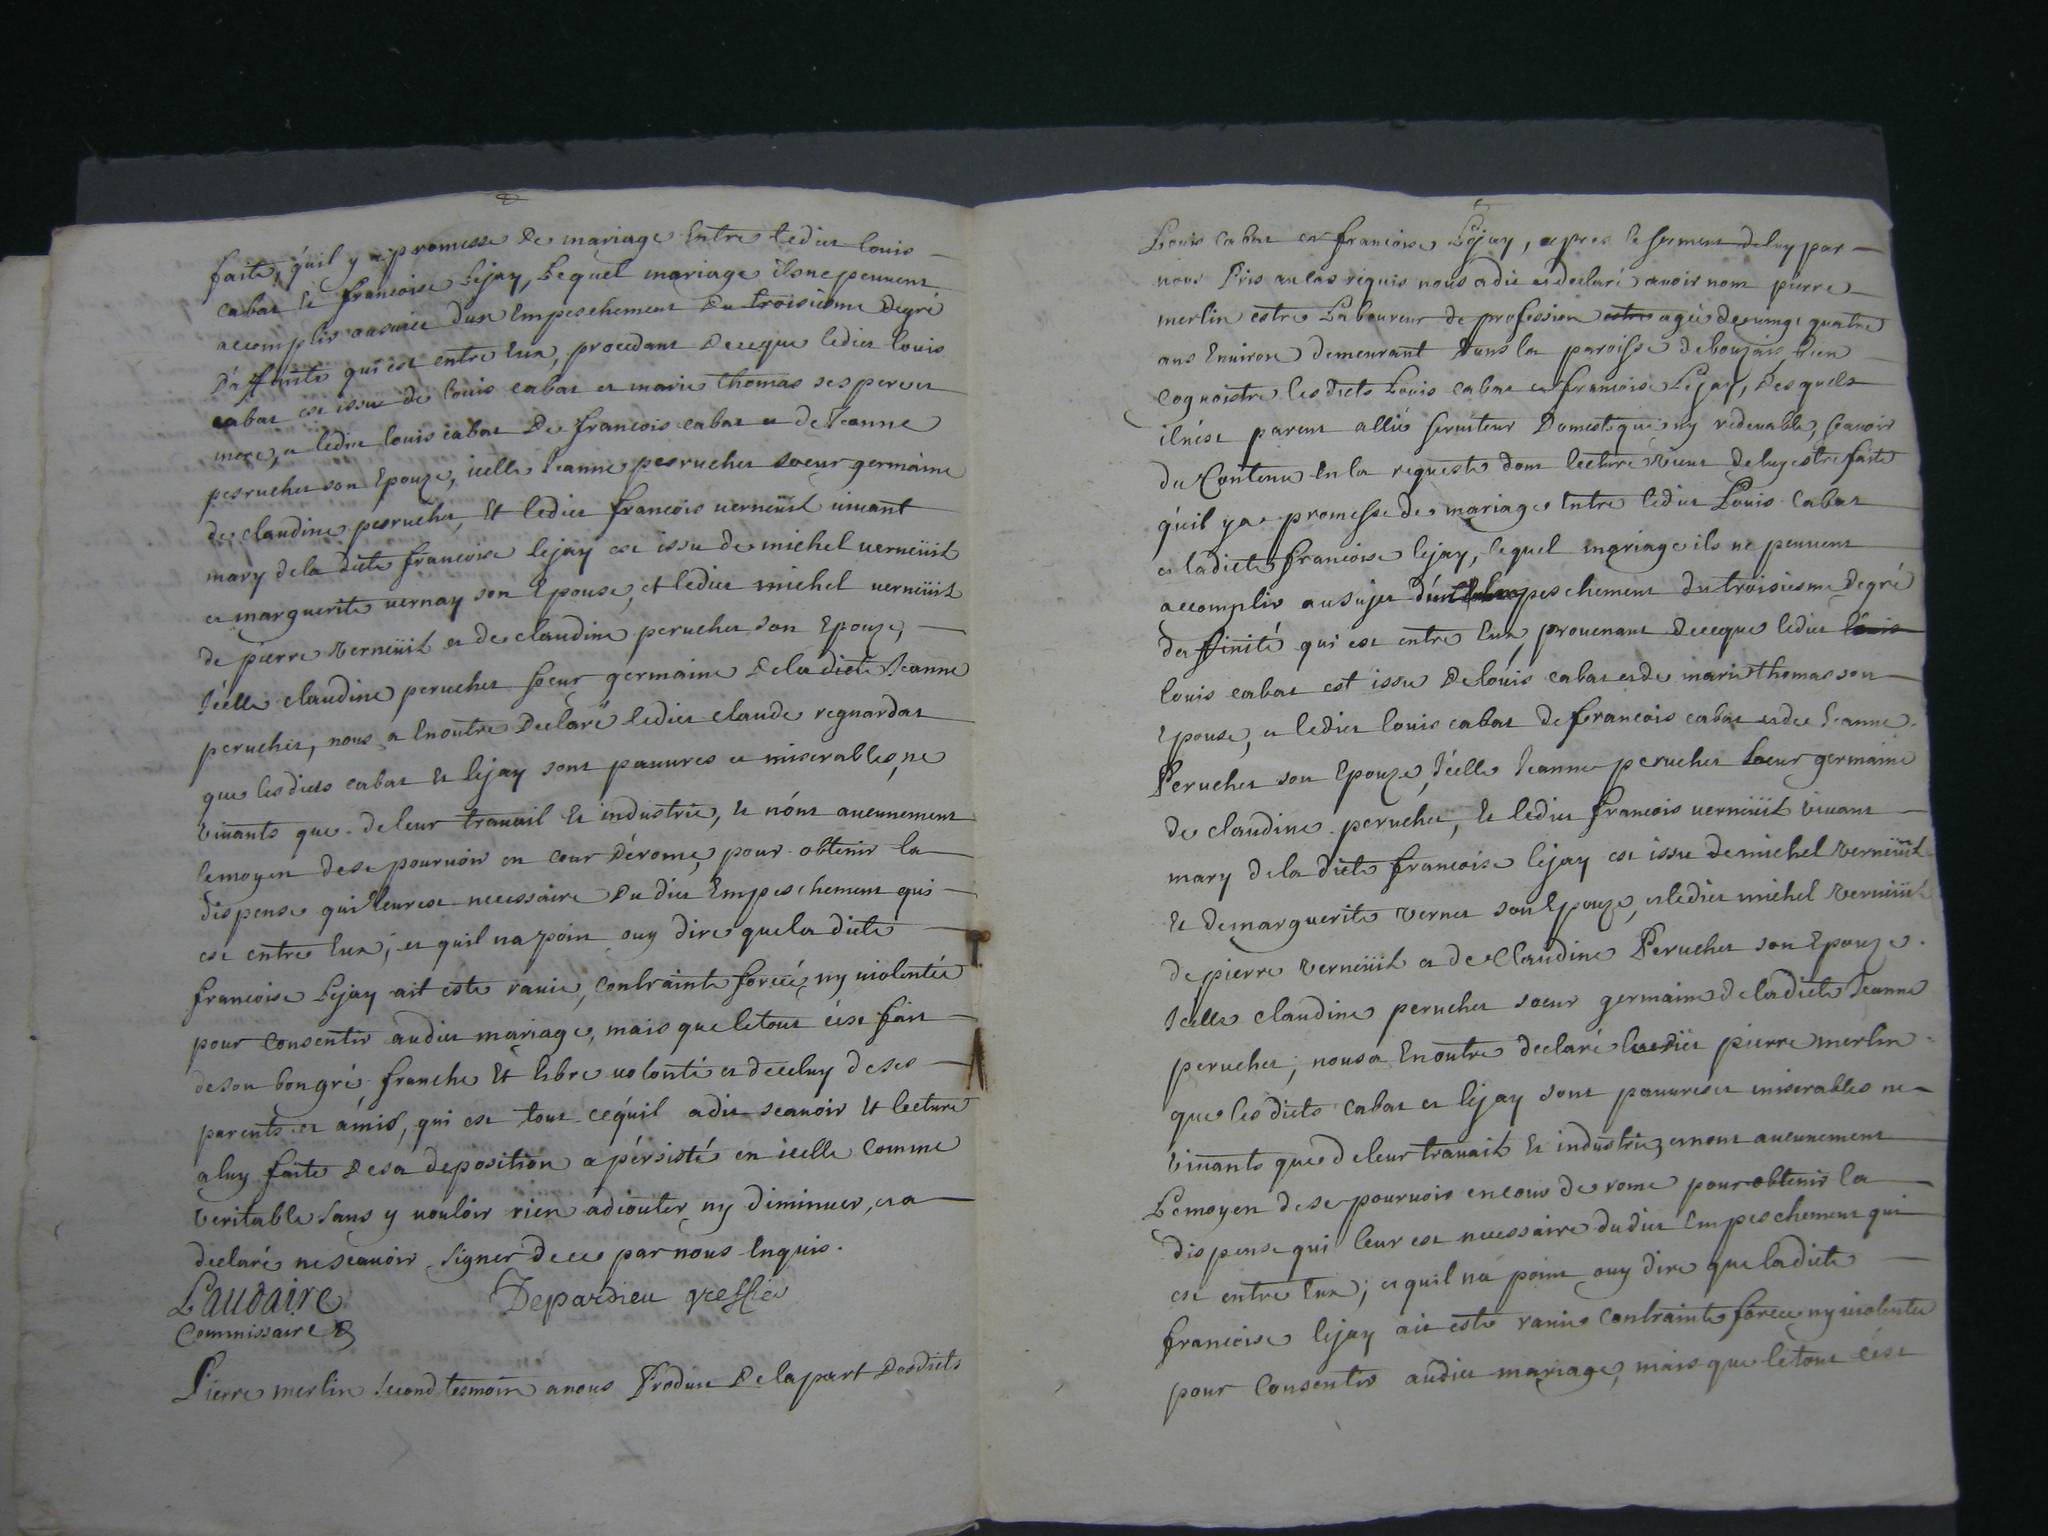 faite, qu'il y a promesse De mariage Entre ledict louis
cabat Et francoise Lejay, Lequel mariage ils ne peuuent
accomplir au suiet d'un Empeschement Du troisiesme Degré
D'affinité qui est entre Eux, procedant De ce que ledict louis
cabat est issu de louis cabat et marie thomas ses pere et
mere, et ledict louis cabat De francois cabat et de Jeanne
perruchet son Epouze, icelle Jeanne perruchet soeur germaine
de claudine perruchet, Et ledict francois uerneüil uiuant
mary de la dicte francoise lejay est issu de michel uerneüil
et marguerite uernay son Epouse, et ledict michel uerneüil
de pierre Verneüil et de claudine peruchet son Epouze,
Icelle claudine peruchet soeur germaine De la dicte Jeanne
peruchet, nous a En outre Declaré ledict claude regnardat
que les dicts cabat Et lejay sont pauures et miserables, ne
Viuants que de leur trauail Et industrie, et n'ont aucunement
le moyen de se pouruoir en cour De rome, pour obtenir la
dispense qui leur est necessaire Du dict Empeschement qui
est entre Eux; et quil na point ouy dire que la dicte
francoise Lejay ait esté rauie, contrainte forcée, ny uiolentée
pour Consentir audict mariage, mais que le tout s'est fait
de son bon gré franche Et libre uolonté et de celuy de ses
parents et amis, qui est tout ce qu'il a dit scauoir Et lecture
a luy faite De sa deposition a persisté en icelle Comme
Veritable sans y uouloir rien adiouter ny diminuer, et a
declaré ne scauoir signer de ce par nous Enquis.
Laudaire Depardieu greffier
Commissaire
Pierre merlin second tesmoin a nous Produit De la part Desdicts
Louis Cabat et francoise Lejay, apres le serment de luy par
nous Pris au cas requis nous a dit et declaré auoir nom pierre
merlin estre Laboureur de profession estre agé de uingt quatre
ans Enuiron demeurant Dans la paroisse de bien
Cognoistre les dicts Louis cabat et francoise Lejay, Desquels
il n'est parent allié seruiteur Domestique ny redeuable, scauoir
du Contenu En la requeste dont lecture Vient de luy estre faite
qu'il y a promesse de mariage Entre ledict Louis Cabat
et ladicte francoise lejay, lequel mariage ils ne peuuent
accomplir au sujet d'un Empeschement du troisiesme Degré
daffinité qui est entre Eux, prouenant De ce que ledict louis
louis cabat est issu De louis cabat et de marie thomas son
Epouse, et ledict louis cabat de francois cabat et de Jeanne
Peruchet son Epouze, Icelle Jeanne peruchet soeur germaine
de claudine peruchet, Et ledict francois uerneüil Viuant
mary de la dicte francoise lejay est issu de michel Verneüil
Et de marguerite Vernet son Epouze, et ledict michel Verneüil
de pierre Verneüil et de Claudine Peruchet son Epouze.
Icelle claudine peruchet soeur germaine de la dicte Jeanne
peruchet; nous a En outre declaré ledict pierre merlin
que les dicts cabat et lejay sont pauures et miserables ne
Viuants que de leur trauail Et industrie, et nont aucunement
Le moyen de se pouruoir en cour de rome pour obtenir la
dispense qui leur est necessaire du dict Empeschement qui
est entre Eux; et quil na point ouy dire que la dicte
francoise lejay ait esté rauie contrainte forcée ny uiolentée
pour Consentir audict mariage, mais que le tout s'est